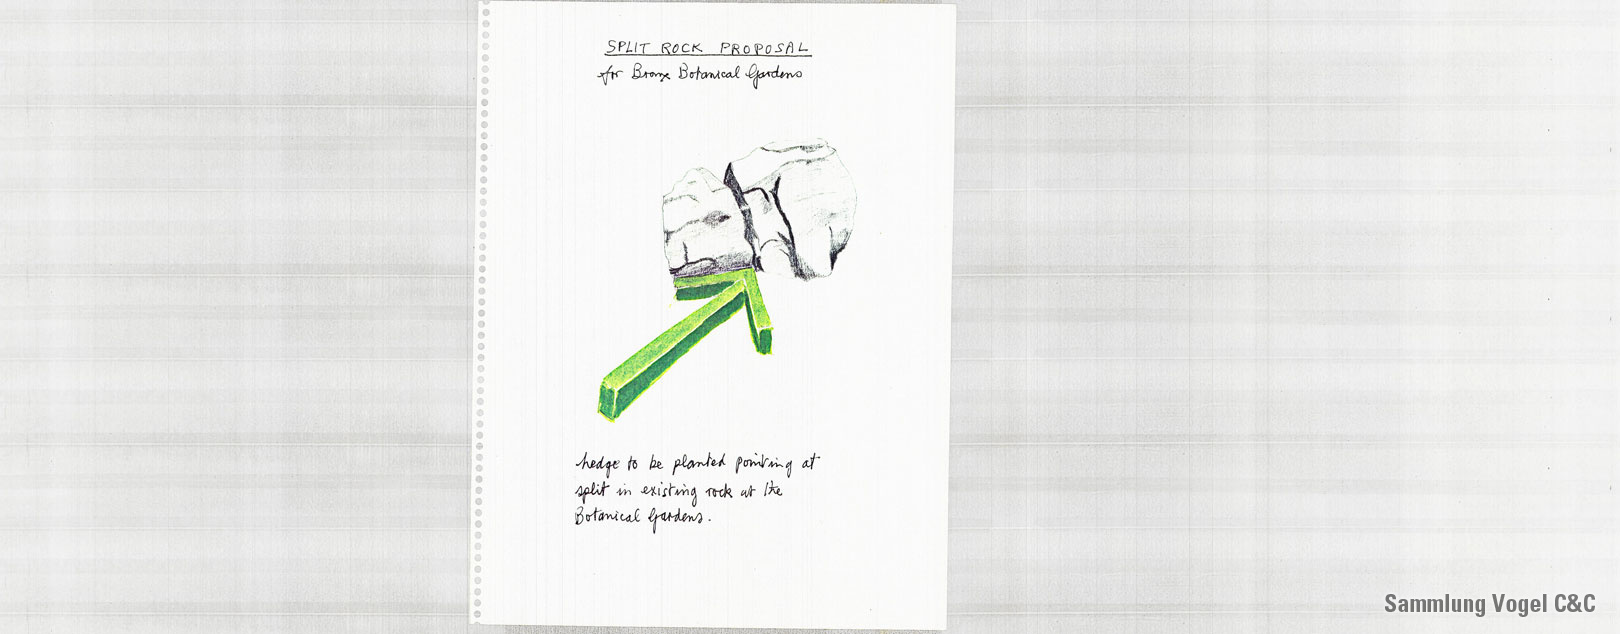 SPLIT ROCK PROPOSAL
for Bronx Botanical Gardens
hedge to be planted pointing at
split in existing rock at the
Botanical Gardens.
Sammlung Vogel C&C